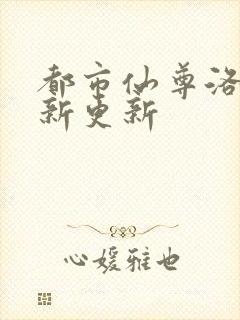 都市仙尊洛
新更新
心媛雅也